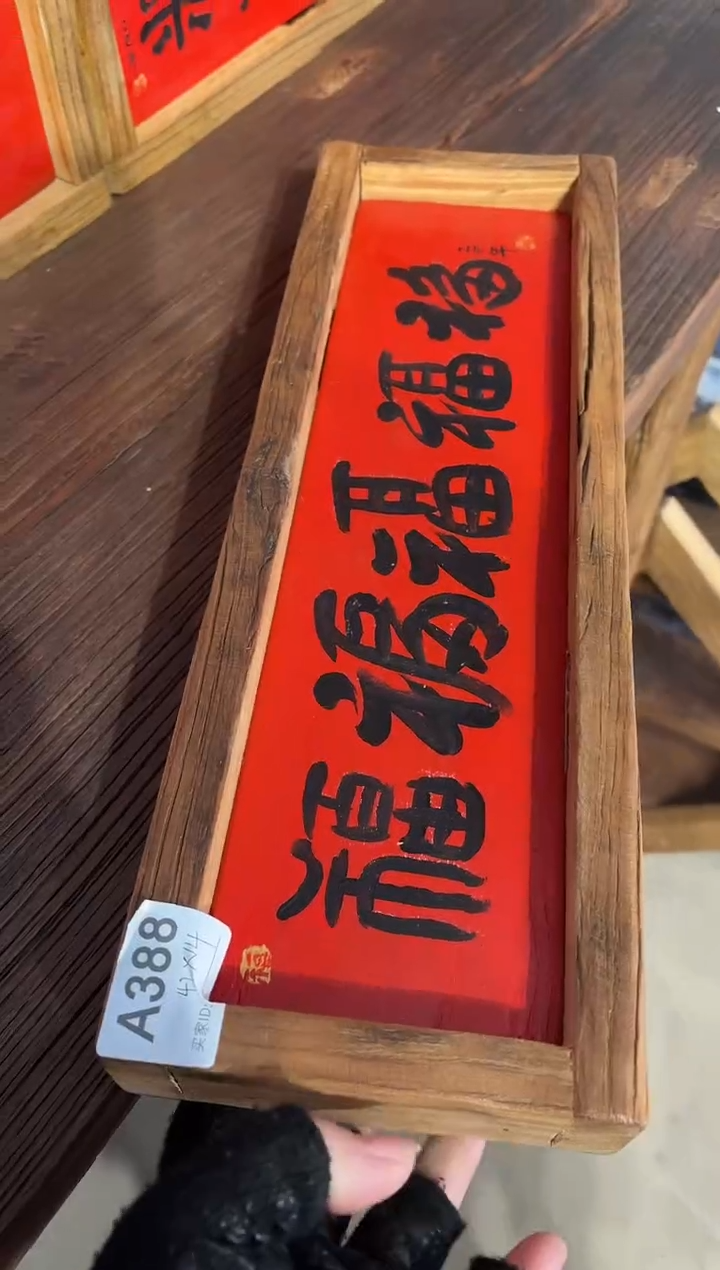 福福福福福
A388
42×14
买家ID: